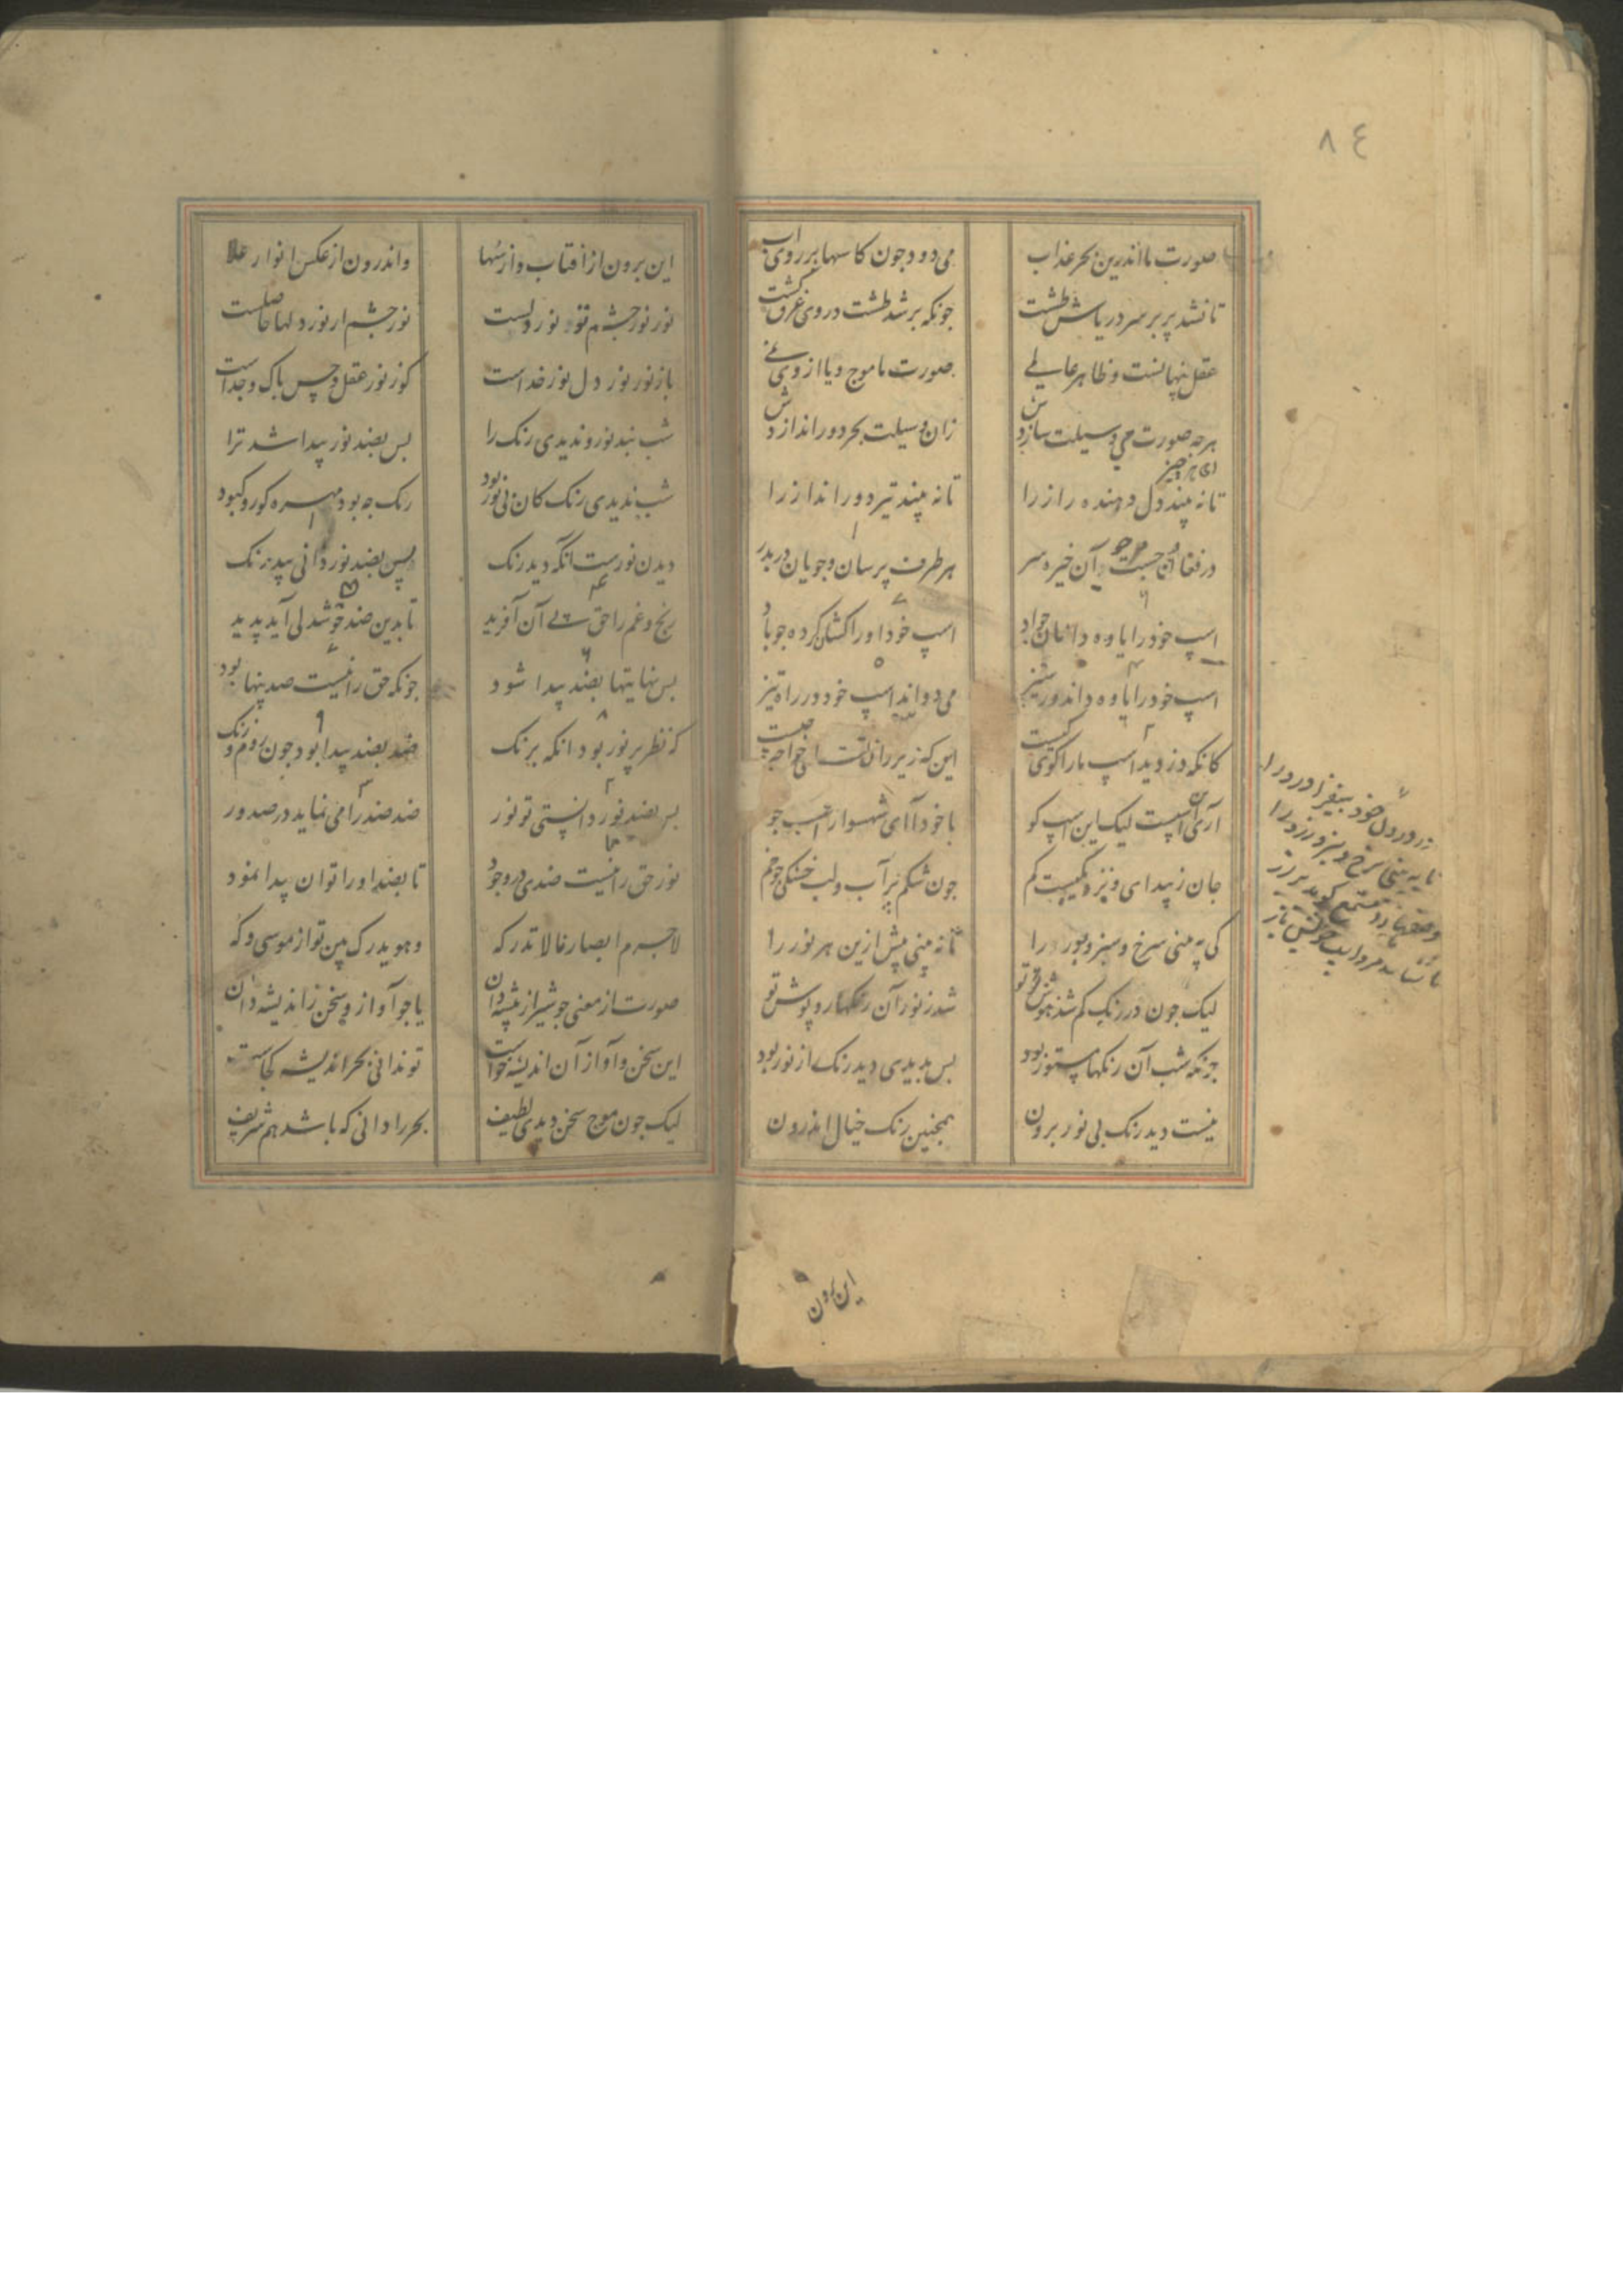 ٨٤
صورت ما اندرین بحر عذاب می دود جون کاسها بر روی آب
تا نشد پر بر سر دریاش طشت جونکه بر شد طشت در وی غرق کشت
عقل پنهانست و ظاهر عالمی صورت ما موج و یا از وی نمی
هرجه صورت می وسیلت سازدش زان وسیلت بحر دور اندازدش
ای هر جیز
تا نه بیند دل دهنده راز را تا نه بیند تیر دور انداز را
در فغان و جست و جو آن خیره سر هر طرف پرسان و جویان در بدر
اسپ خود را یاوه داند آن جواد اسپ خود او را کشان کرده جو باد
اسپ خود را یاوه داند ور ستیز می دواند اسپ خود در راه تیز
کانکه دزدید اسپ ما را کو و کیست این که زیر ران تست ای خواجه چیست
آری آن اسپست لیک این اسپ کو با خود آ ای شهسوار اسپ جو
جان ز پیدای و نزدیکیست کم جون شکم پر آب و لب خشکی جو خم
کی به بینی سرخ و سبز و بور را تا نه بینی پیش ازین هر نور را
لیک جون در رنک کم شد هوش تو شد ز نور آن رنکها روپوش تو
جونکه شب آن رنکها مستور بود بس بدیدی دید رنک از نور بود
نیست دید رنک بی نور برون همجنین رنک خیال اندرون
در درون خود بیفزا درد را
تا به بینی سرخ و سبز و زرد را
این برون
این برون از آفتاب و از سها واندرون از عکس انوار علا
نور نور جشم تو نور دلست نور جشم از نور دلها حاصلست
باز نور نور دل نور خداست کو ز نور عقل و حس پاک و جداست
شب نبد نور و ندیدی رنک را بس بضد نور پیدا شد ترا
شب ندیدی رنک کان بی نور بود رنک جه بود مهره کور و کبود
دیدن نورست آنکه دید رنک پس بضد نور دانی بی درنک
رنج و غم را حق پی آن آفرید تا بدین ضد خوشدلی آید پدید
بس نهانیها بضد پیدا شود جونکه حق را نیست ضد پنهان بود
که نظر بر نور بود آنکه برنک ضد بضد پیدا بود جون روم و زنک
بس بضد نور دانستی تو نور ضد ضد را می نماید در صدور
نور حق را نیست ضدی در وجود تا بضد او را توان پیدا نمود
لاجرم ابصارنا لا تدرکه وهو یدرک بین تو از موسی و که
صورت از معنی جو شیر از بیشه دان یا جو آواز و سخن ز اندیشه دان
این سخن و آواز از آن اندیشه خواست تو ندانی بحر اندیشه کجاست
لیک جون موج سخن دیدی لطیف بحر را دانی که باشد هم شریف